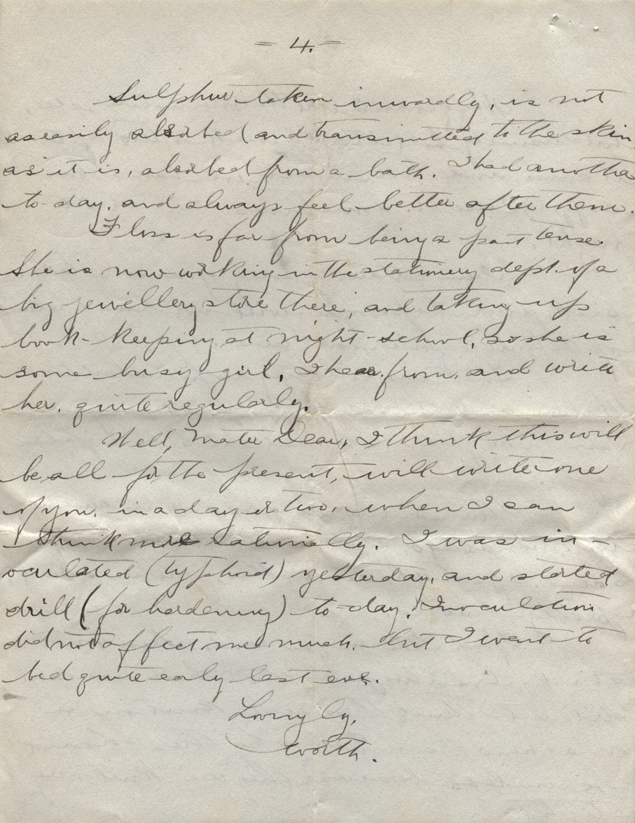 - 4. -
Sulphur taken inwardly, is not
as easily absorbed (and transmitted to the skin,
as it is, absorbed from a bath. I had another
to-day, and always feel better after them.
Floss is far from being a past tense.
She is now working in the stationery dept. of a
big jewellery store there, and taking up
book-keeping at night-school, so she is
some busy girl. I hear from, and write
her, quite regularly.
Well, Mater Dear, I think this will
be all for the present, will write one
of you, in a day or two, when I can
think more rationally. I was in-
oculated (typhoid) yesterday, and started
drill (for hardening) to-day. Inoculation
did not affect me much, but I went to
bed quite early last eve.
Lovingly,
Worth.